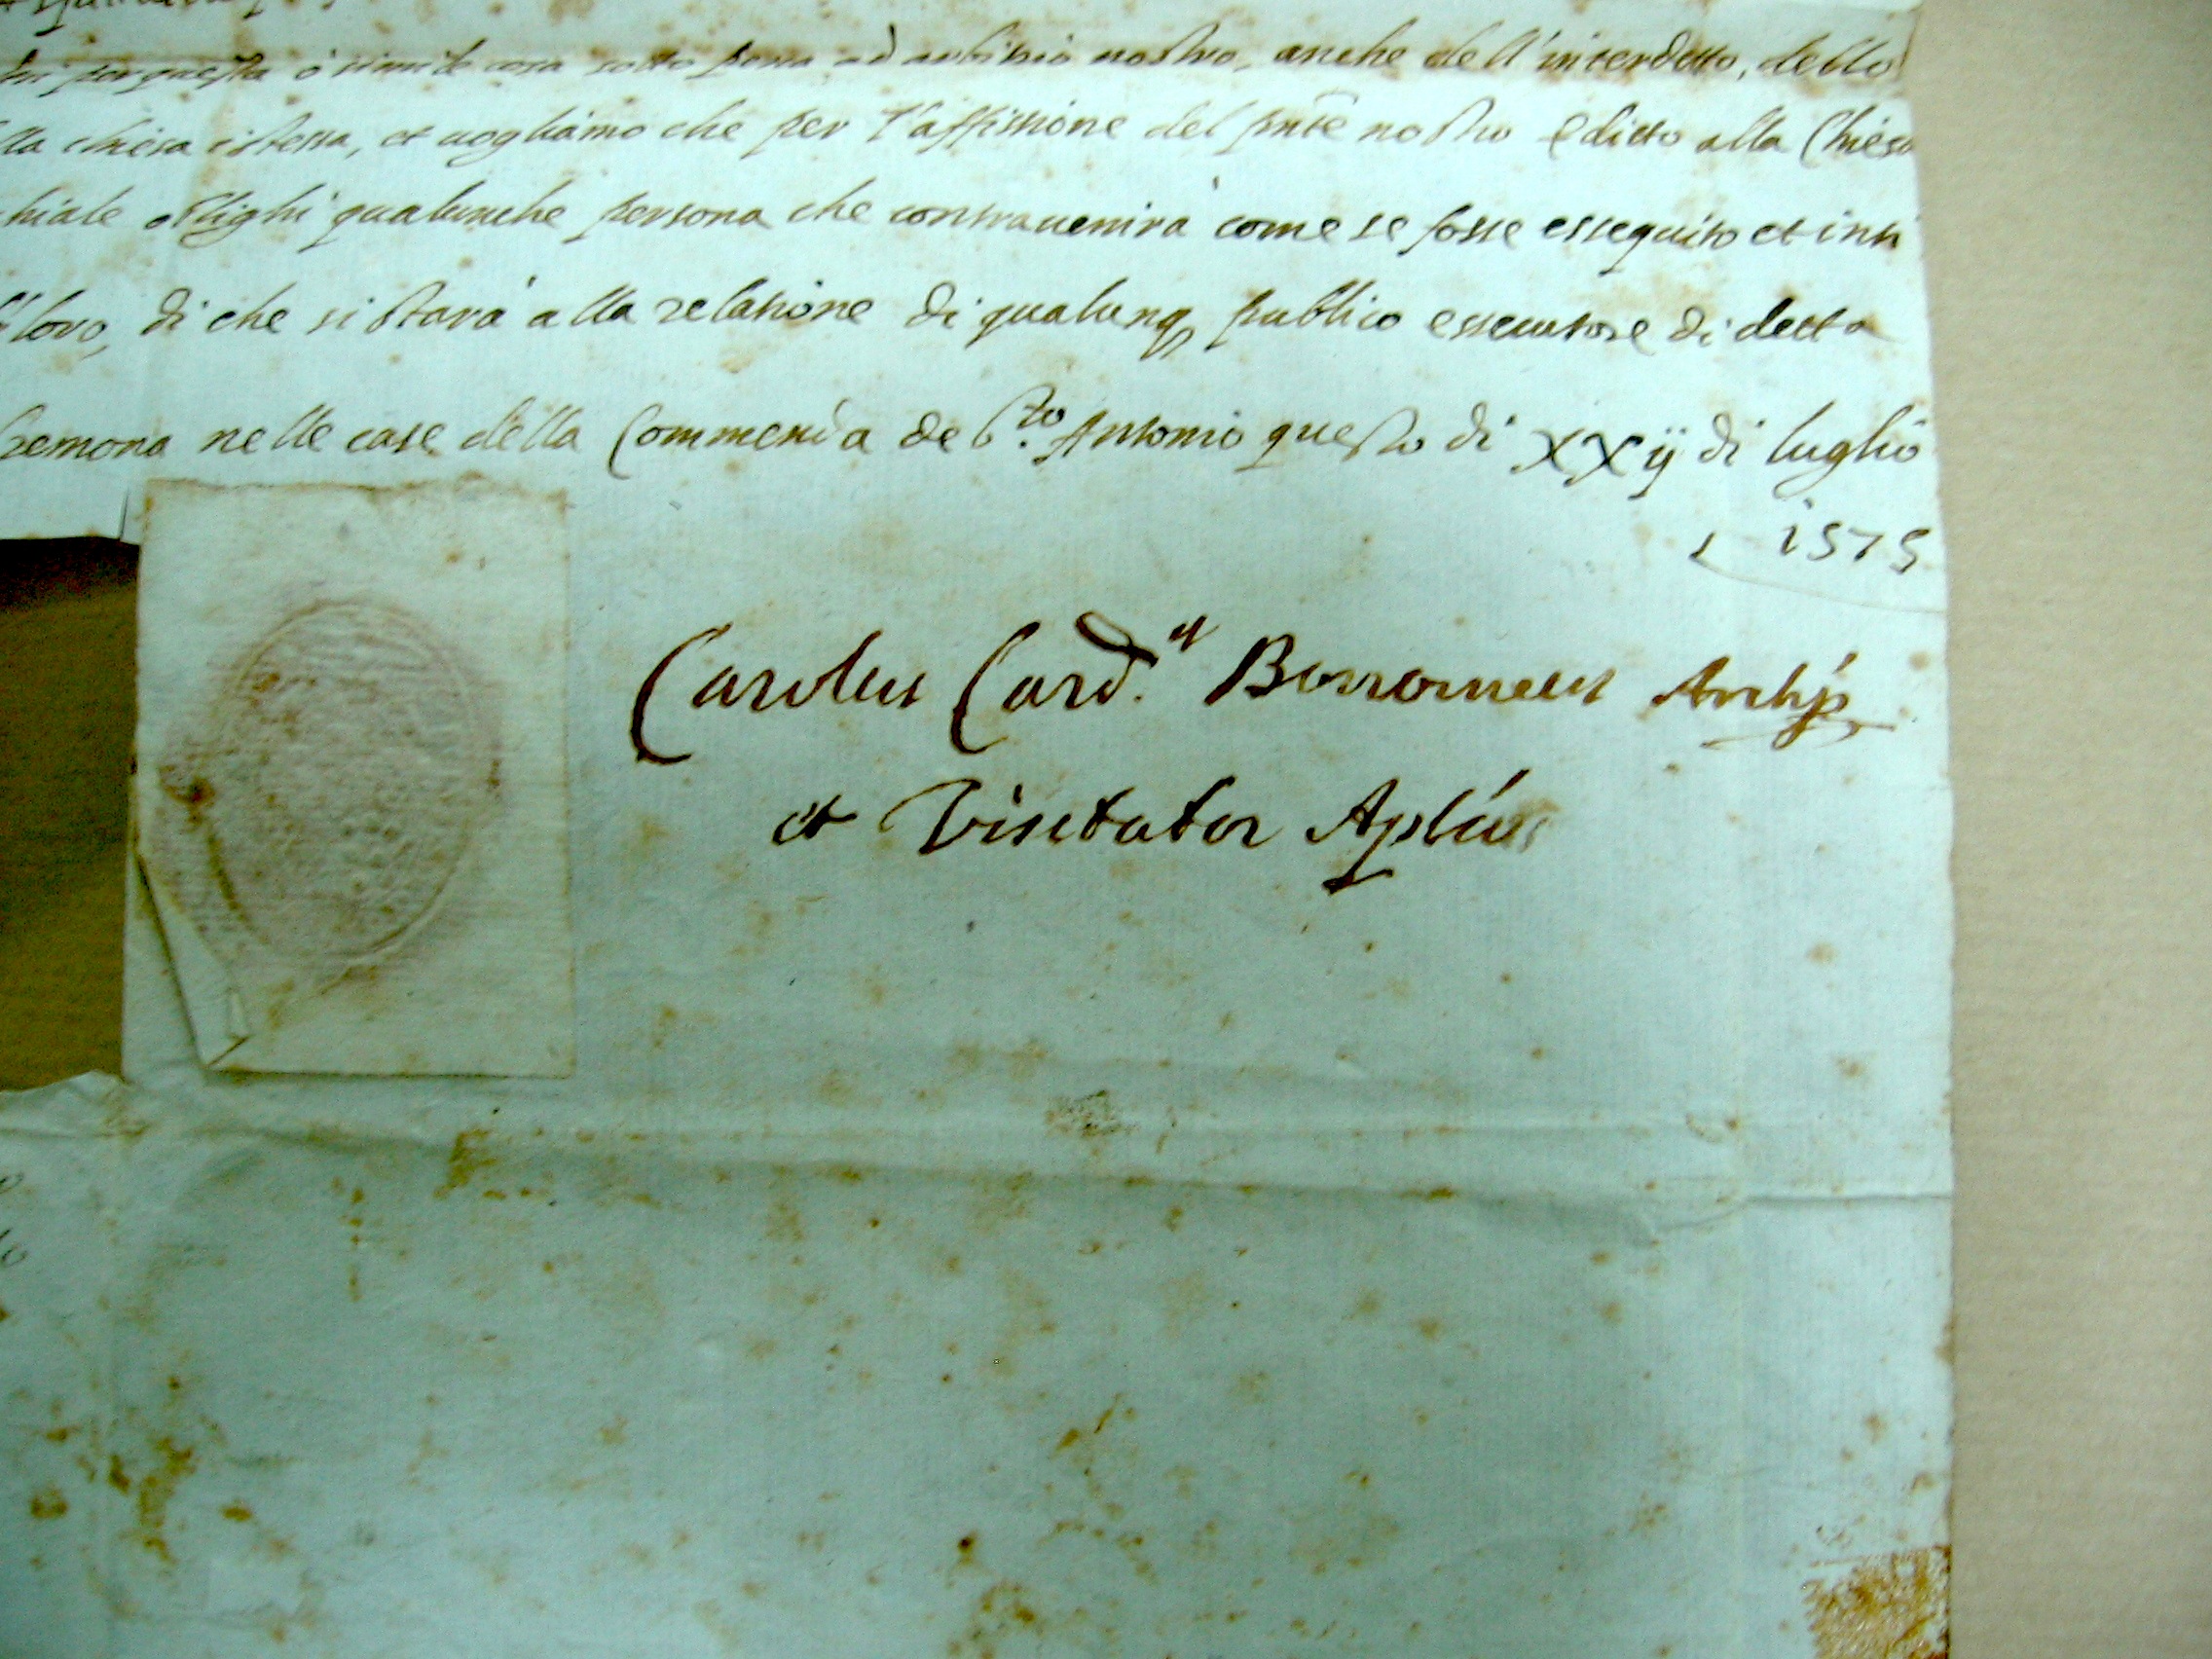 per questa ò simile cosa sotto pena ad arbitrio nostro, anche dell'interdetto, dello
lla chiesa istessa, et vogliamo che per l'affissione del pnte nostro Editto alla Chiesa
chiale oblighi qualunche persona che contravenirà come se fosse essequito et inti
loro, di che si starà alla relatione di qualunq publico essecutore di detta
Cremona nelle case della Commenda de S.to Antonio questo di XXij di luglio
1575
Carolus Card.lis Borromeus Archps
et Visitator Aplicus